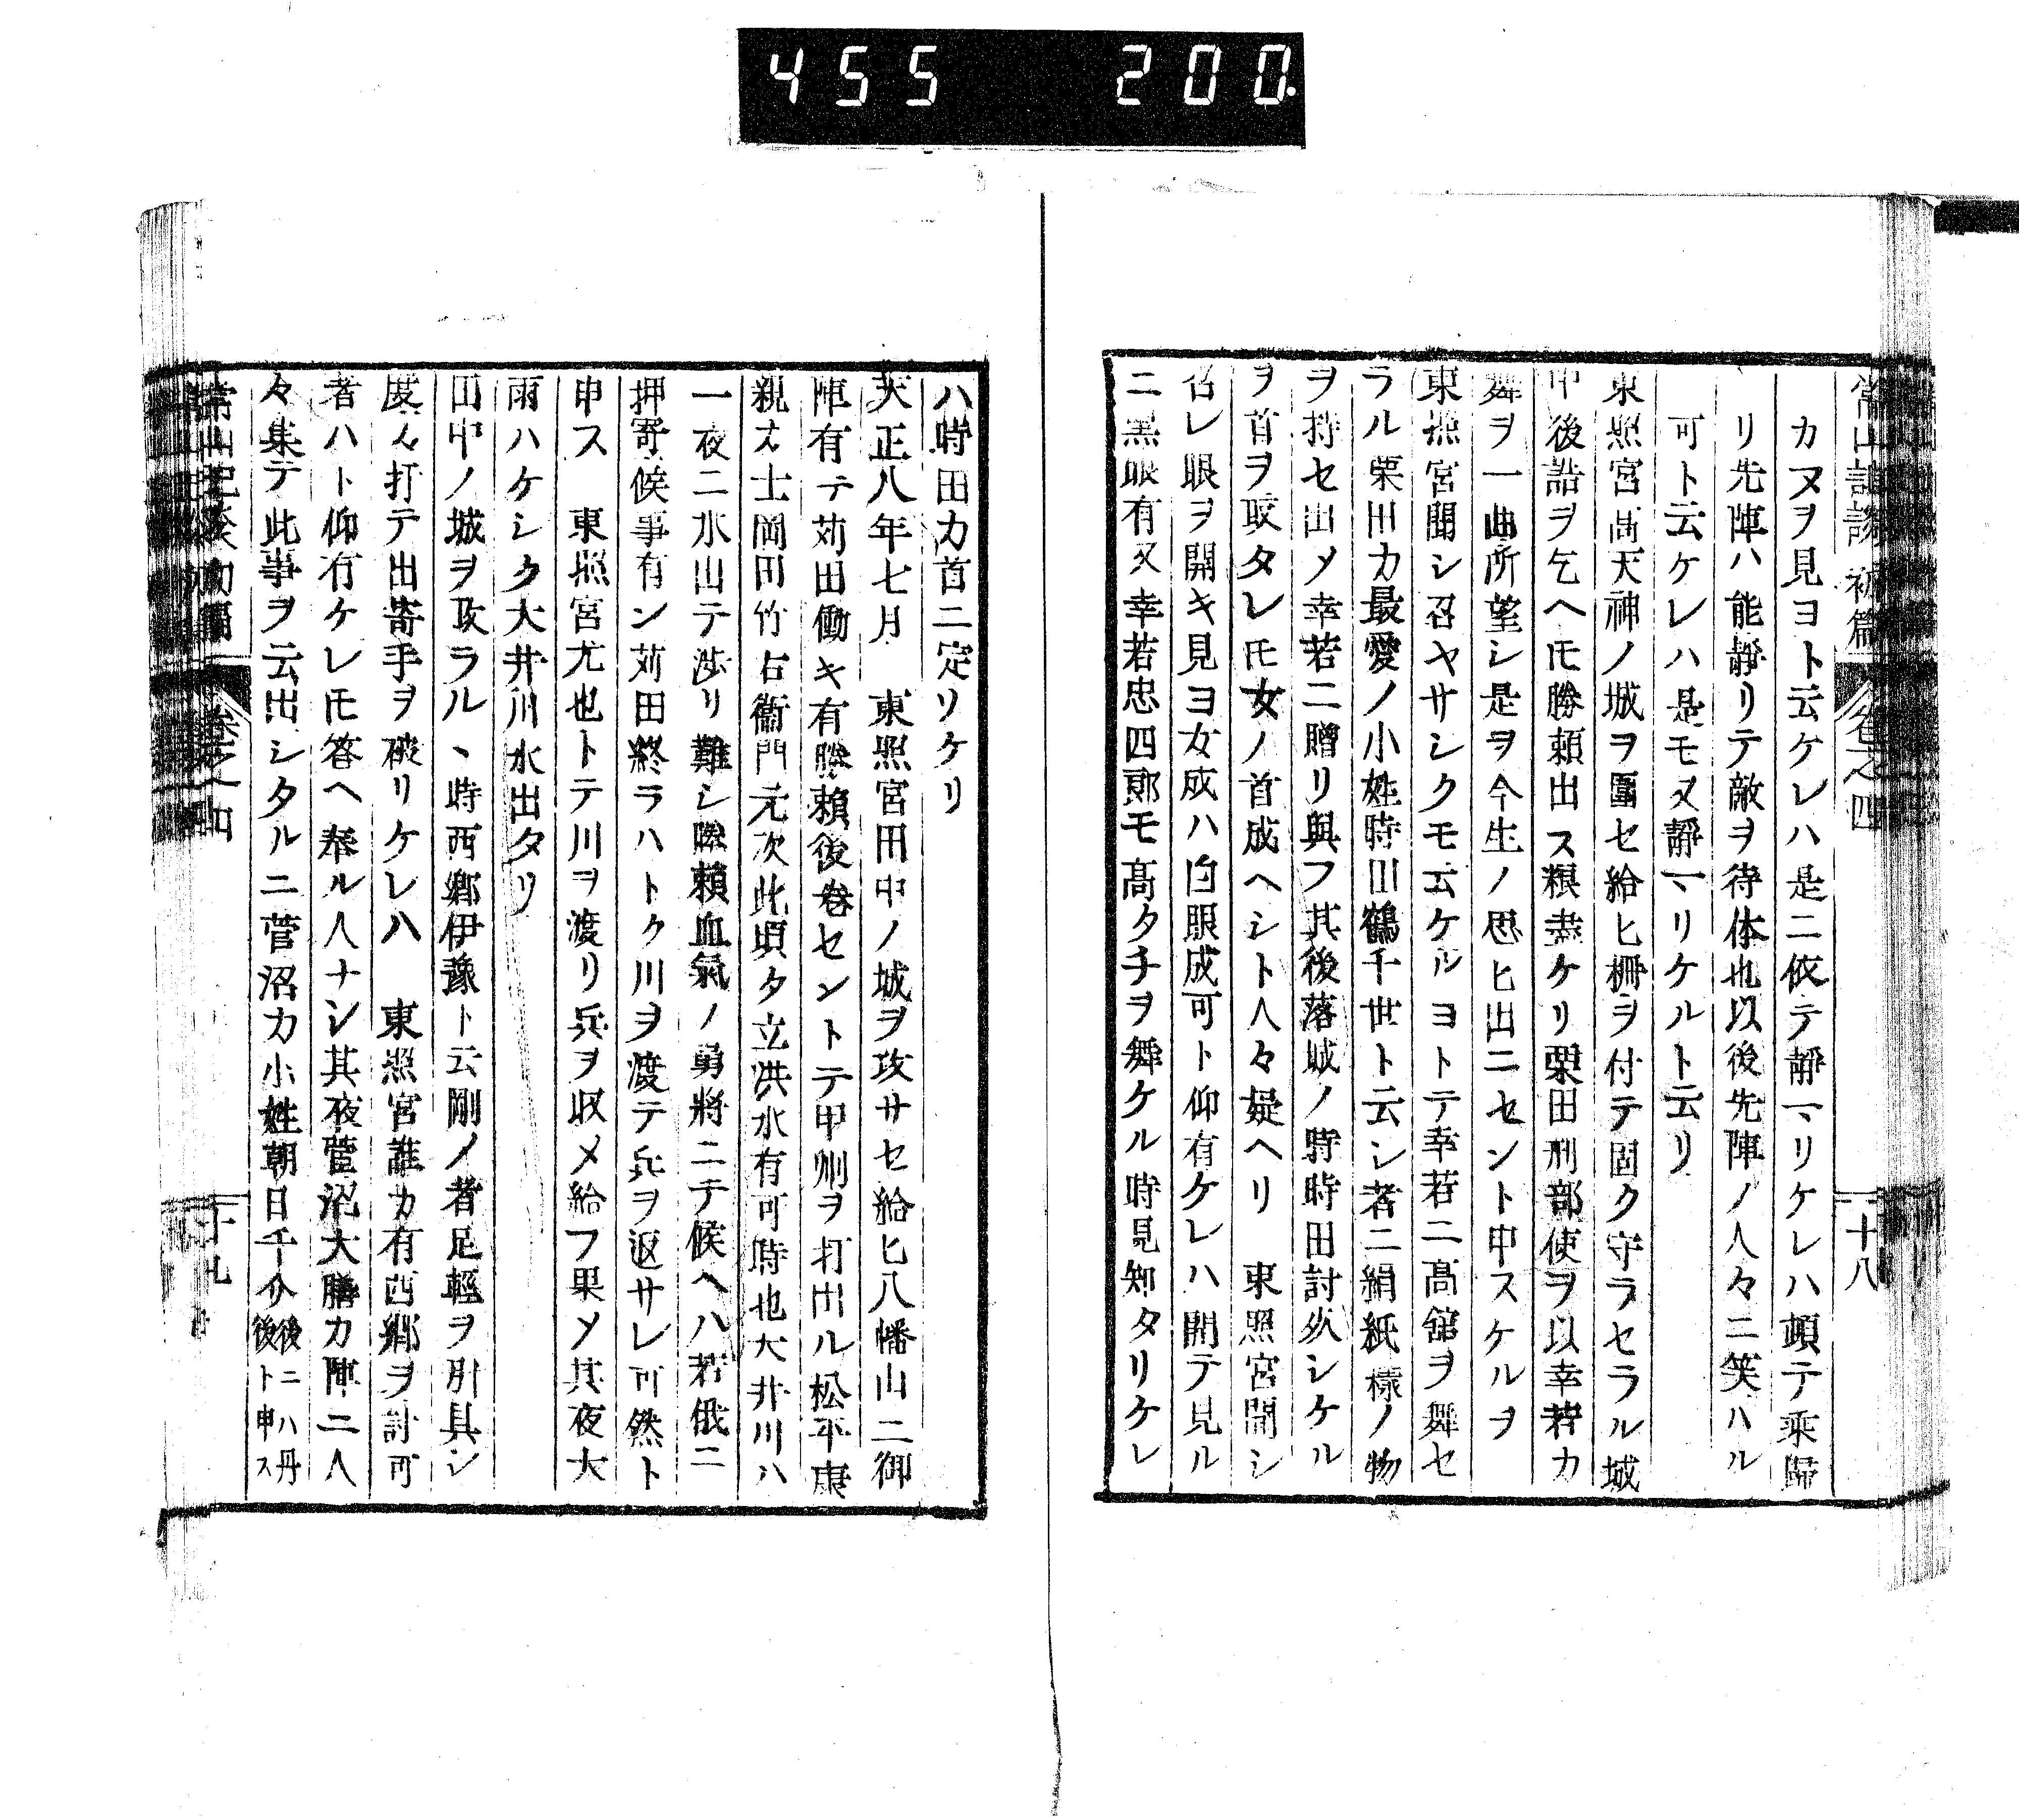 455 200.
常山記談 初篇 卷之四 十八
カヌヲ見ヨト云ケレハ是ニ依テ靜マリケレハ頓テ乘歸
リ先陣ハ能靜リテ敵ヲ待体也以後先陣ノ人々ニ笑ハル
可ト云ケレハ是モ又靜マリケルト云リ
東照宮高天神ノ城ヲ圍セ給ヒ柵ヲ付テ固ク守ラセラル城
中後詰ヲ乞ヘ𪜈勝頼出ス粮盡ケリ栗田刑部使ヲ以幸若カ
舞ヲ一曲所望シ是ヲ今生ノ思ヒ出ニセント申スケルヲ
東照宮聞シ召ヤサシクモ云ケルヨトテ幸若ニ高舘ヲ舞セ
ラル栗田カ最愛ノ小姓時田鶴千世ト云シ者ニ絹紙樣ノ物
ヲ持セ出メ幸若ニ贈リ與フ其後落城ノ時時田討死シケル
ヲ首ヲ取タレ𪜈女ノ首成ヘシト人々疑ヘリ 東照宮聞シ
召レ眼ヲ開キ見ヨ女成ハ白眼成可ト仰有ケレハ開テ見ル
ニ黑眼有又幸若忠四郎モ高タチヲ舞ケル時見知タリケレ
ハ時田カ首ニ定リケリ
天正八年七月 東照宮田中ノ城ヲ攻サセ給ヒ八幡山ニ御
陣有テ苅田働キ有勝頼後卷セントテ甲州ヲ打出ル松平康
親カ士岡田竹右衞門元次此頃夕立洪水有可時也大井川ハ
一夜ニ水出テ渉リ難シ勝頼血氣ノ勇將ニテ候ヘハ若俄ニ
押寄候事有ン苅田終ラハトク川ヲ渡テ兵ヲ返サレ可然ト
申ス 東照宮尤也トテ川ヲ渡リ兵ヲ収メ給フ果メ其夜大
雨ハケシク大井川水出タリ
田中ノ城ヲ攻ラルヽ時西郷伊豫ト云剛ノ者足輕ヲ引具シ
度々打テ出寄手ヲ破リケレハ 東照宮誰カ有西郷ヲ討可
者ハト仰有ケレ𪜈答ヘ奉ル人ナシ其夜菅沼大膳カ陣ニ人
々集テ此事ヲ云出シタルニ菅沼カ小姓朝日千介後ニハ丹後ト申ス
常山記談 初篇 卷之四 十九